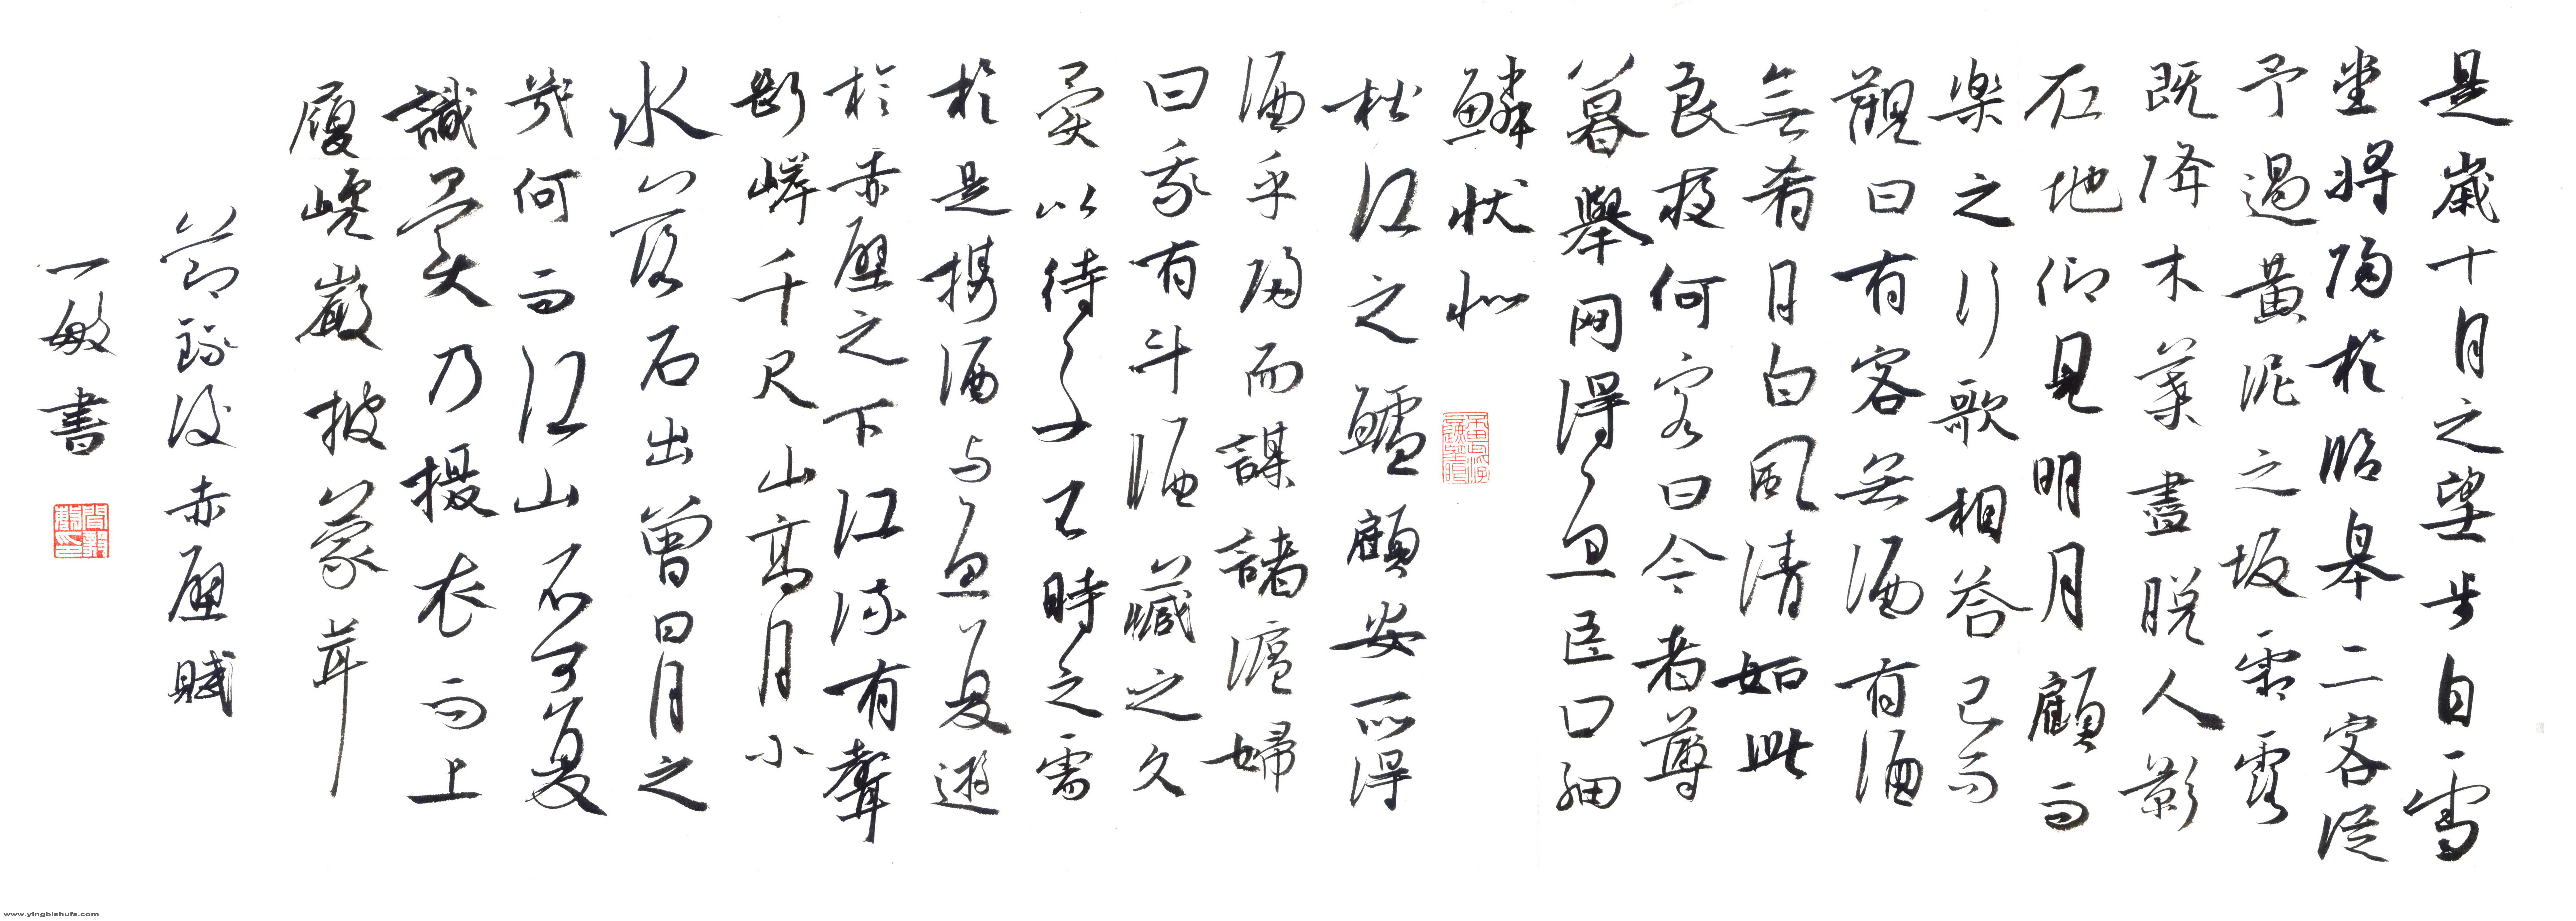 是歲十月之望步自雪
堂將歸於臨皋二客從
予過黃泥之坂霜露
既降木葉盡脫人影
在地仰見明月顧而
樂之行歌相答已而
觀曰有客無酒有酒
無肴月白風清如此
良夜何客曰今者薄
暮舉网得魚巨口細
鱗狀似
松江之鱸顧安所得
酒乎歸而謀諸婦
曰我有斗酒藏之久
矣以待子不時之需
於是攜酒与魚復遊
於赤壁之下江流有聲
斷岸千尺山高月小
水落石出曾日月之
幾何而江山不可復
識矣乃攝衣而上
履巉巖披蒙茸
節錄後赤壁賦
一敏書
www.yingbishufa.com